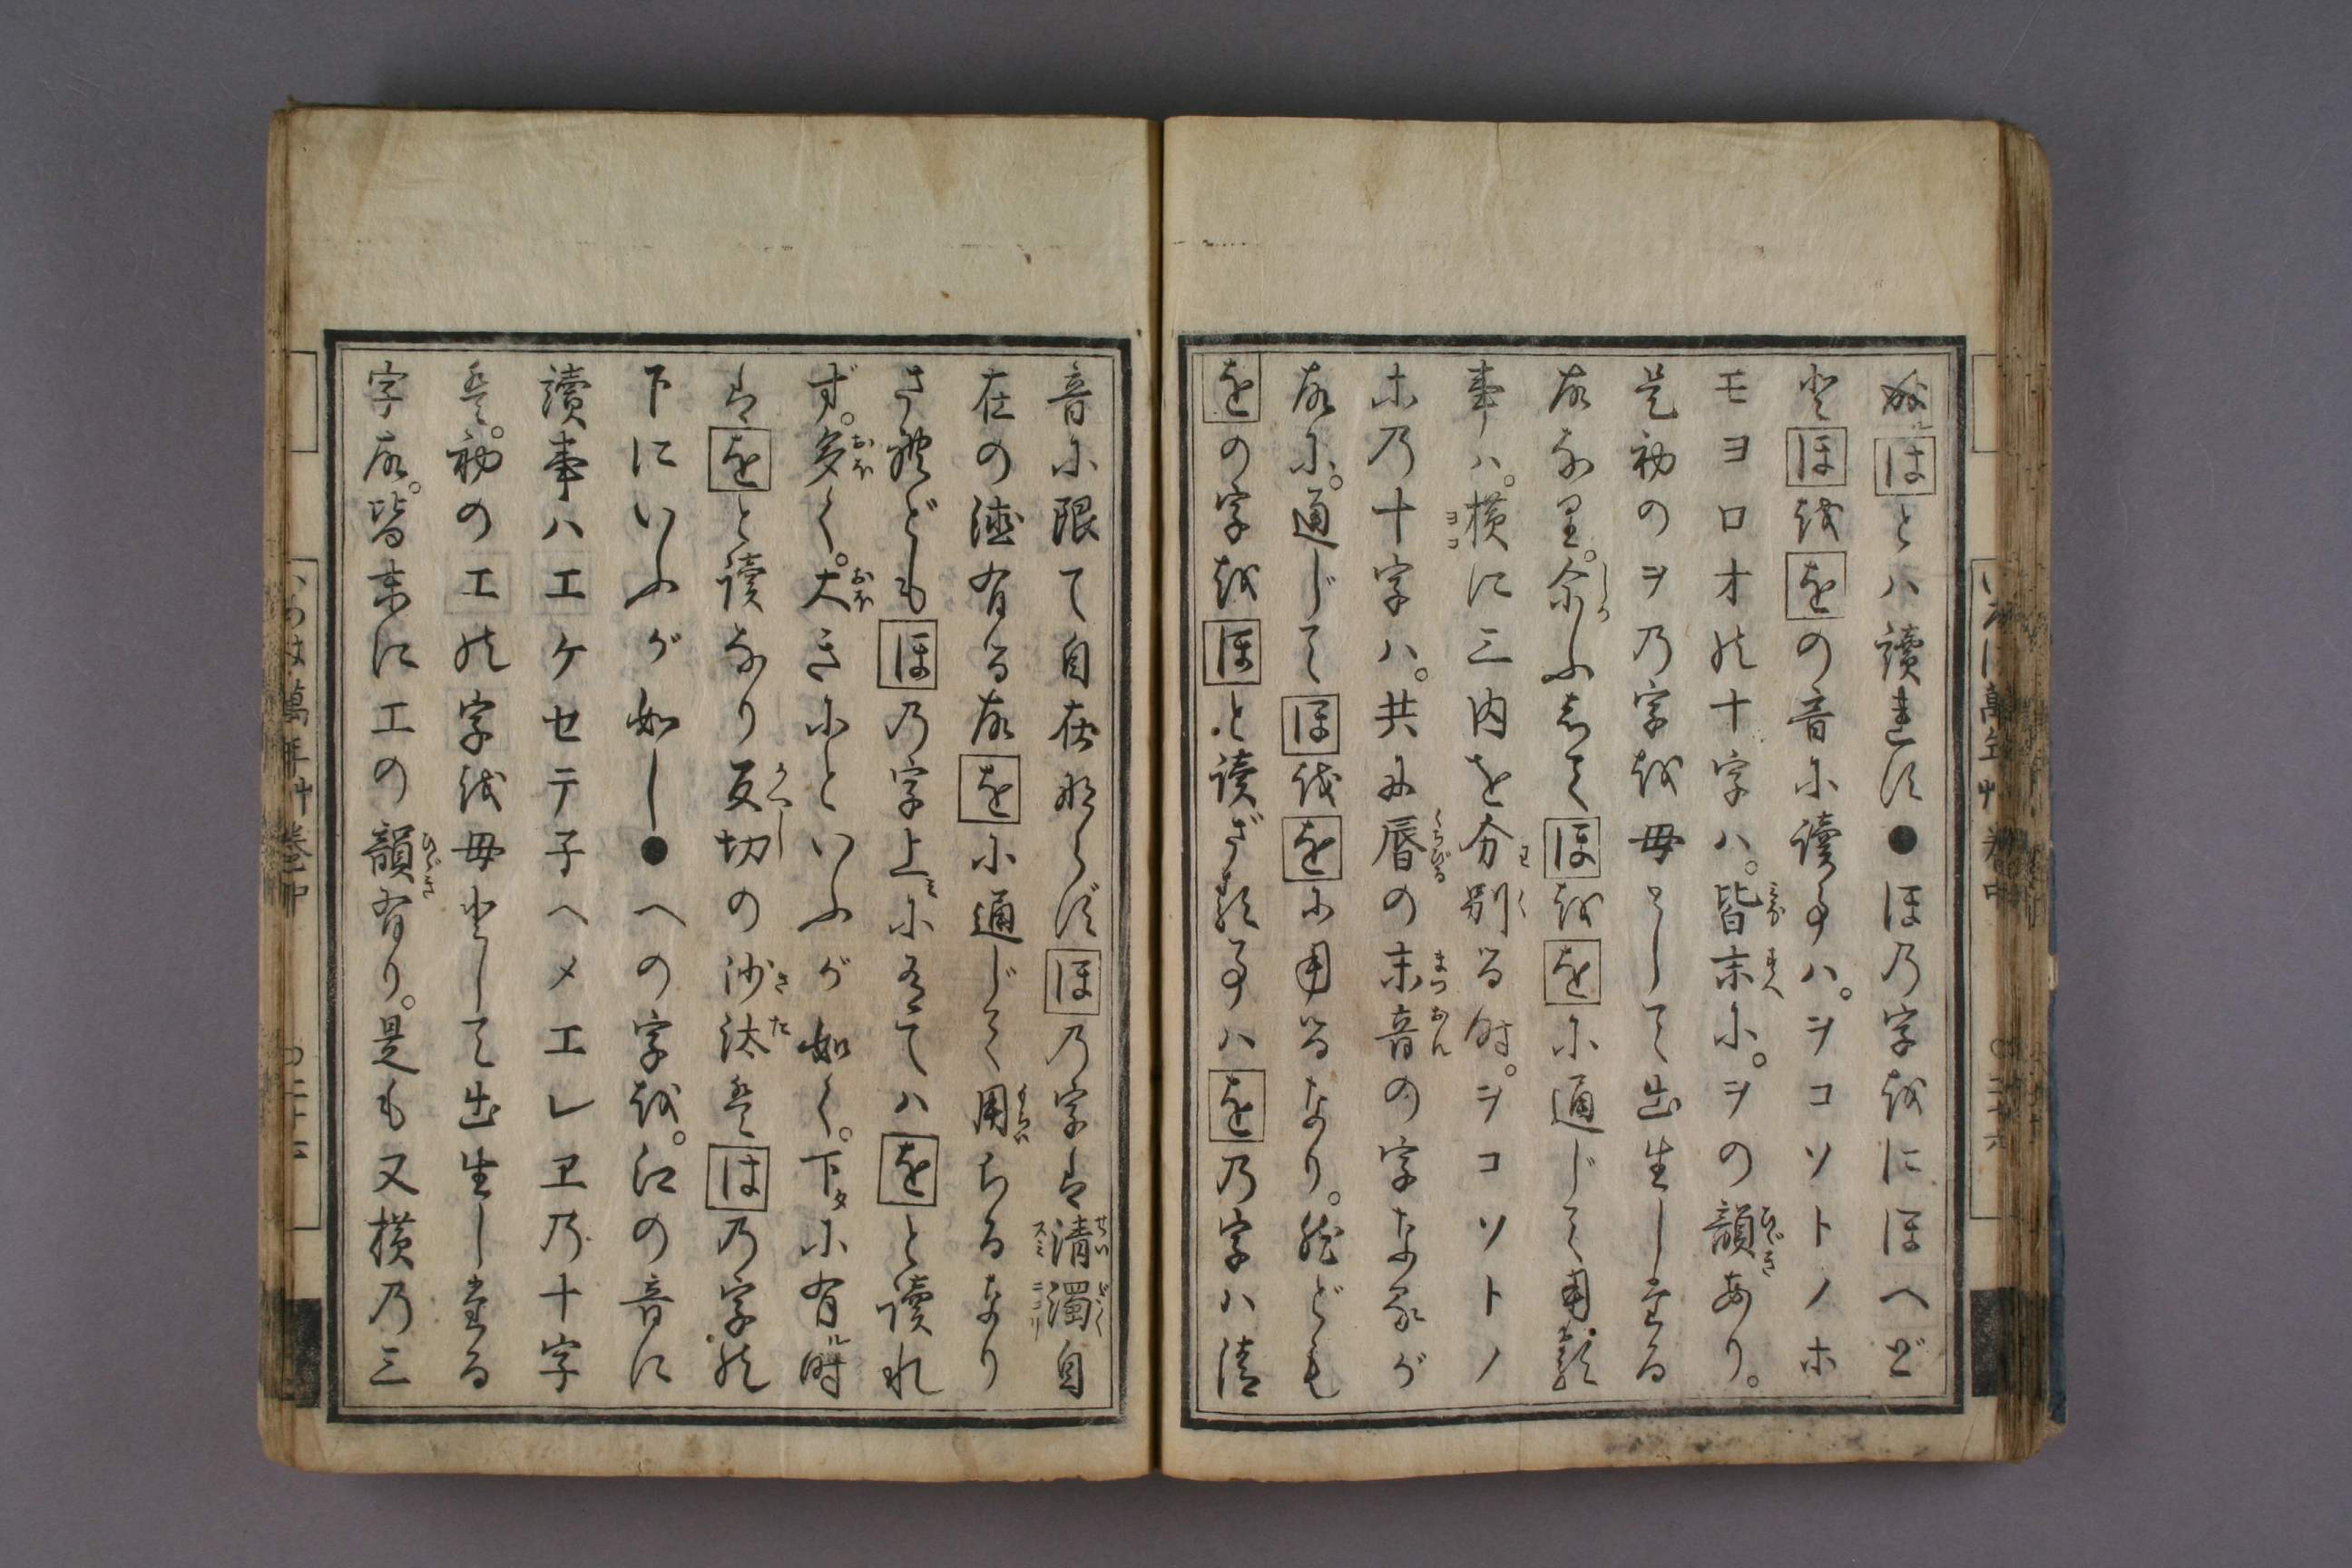 故ルほとハ讀まず●ほ乃字をにほへど
とほををの音に讀事ハ。ヲコソトノホ
モヨロオの十字ハ。皆末に。ヲの韻あり。
是初のヲ乃字を母として出生したる
故なり。余ふしてほををに通じて用る
事ハ。横に三内を分別る時。ヲコソトノ
ホ乃十字ハ。共に唇の末音の字なるが
故に。通じてほををに用るなり。然ども
をの字をほと讀ざる事ハを乃字ハ清
音に限て自在ならずほ乃字は清濁自
在の徳有る故をに通じて用ちるなり
され共どもほ乃字上ミに有てハをと讀れ
ず。多く。大きにといふが如く。下タに有ル時
はをと讀なり反切の沙汰はほ乃字の
下にいふが如し●への字を。江の音に
讀事ハエケセテ子ヘメエレヱ乃十字
は。初のエの字を母として出生したる
字故。皆末にエの韻有り。是も又横乃三